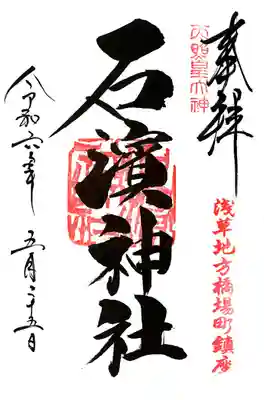 奉拝
天照皇大神
浅草地方橋場町鎮座
石濱神社
令和六年
五月二十五日